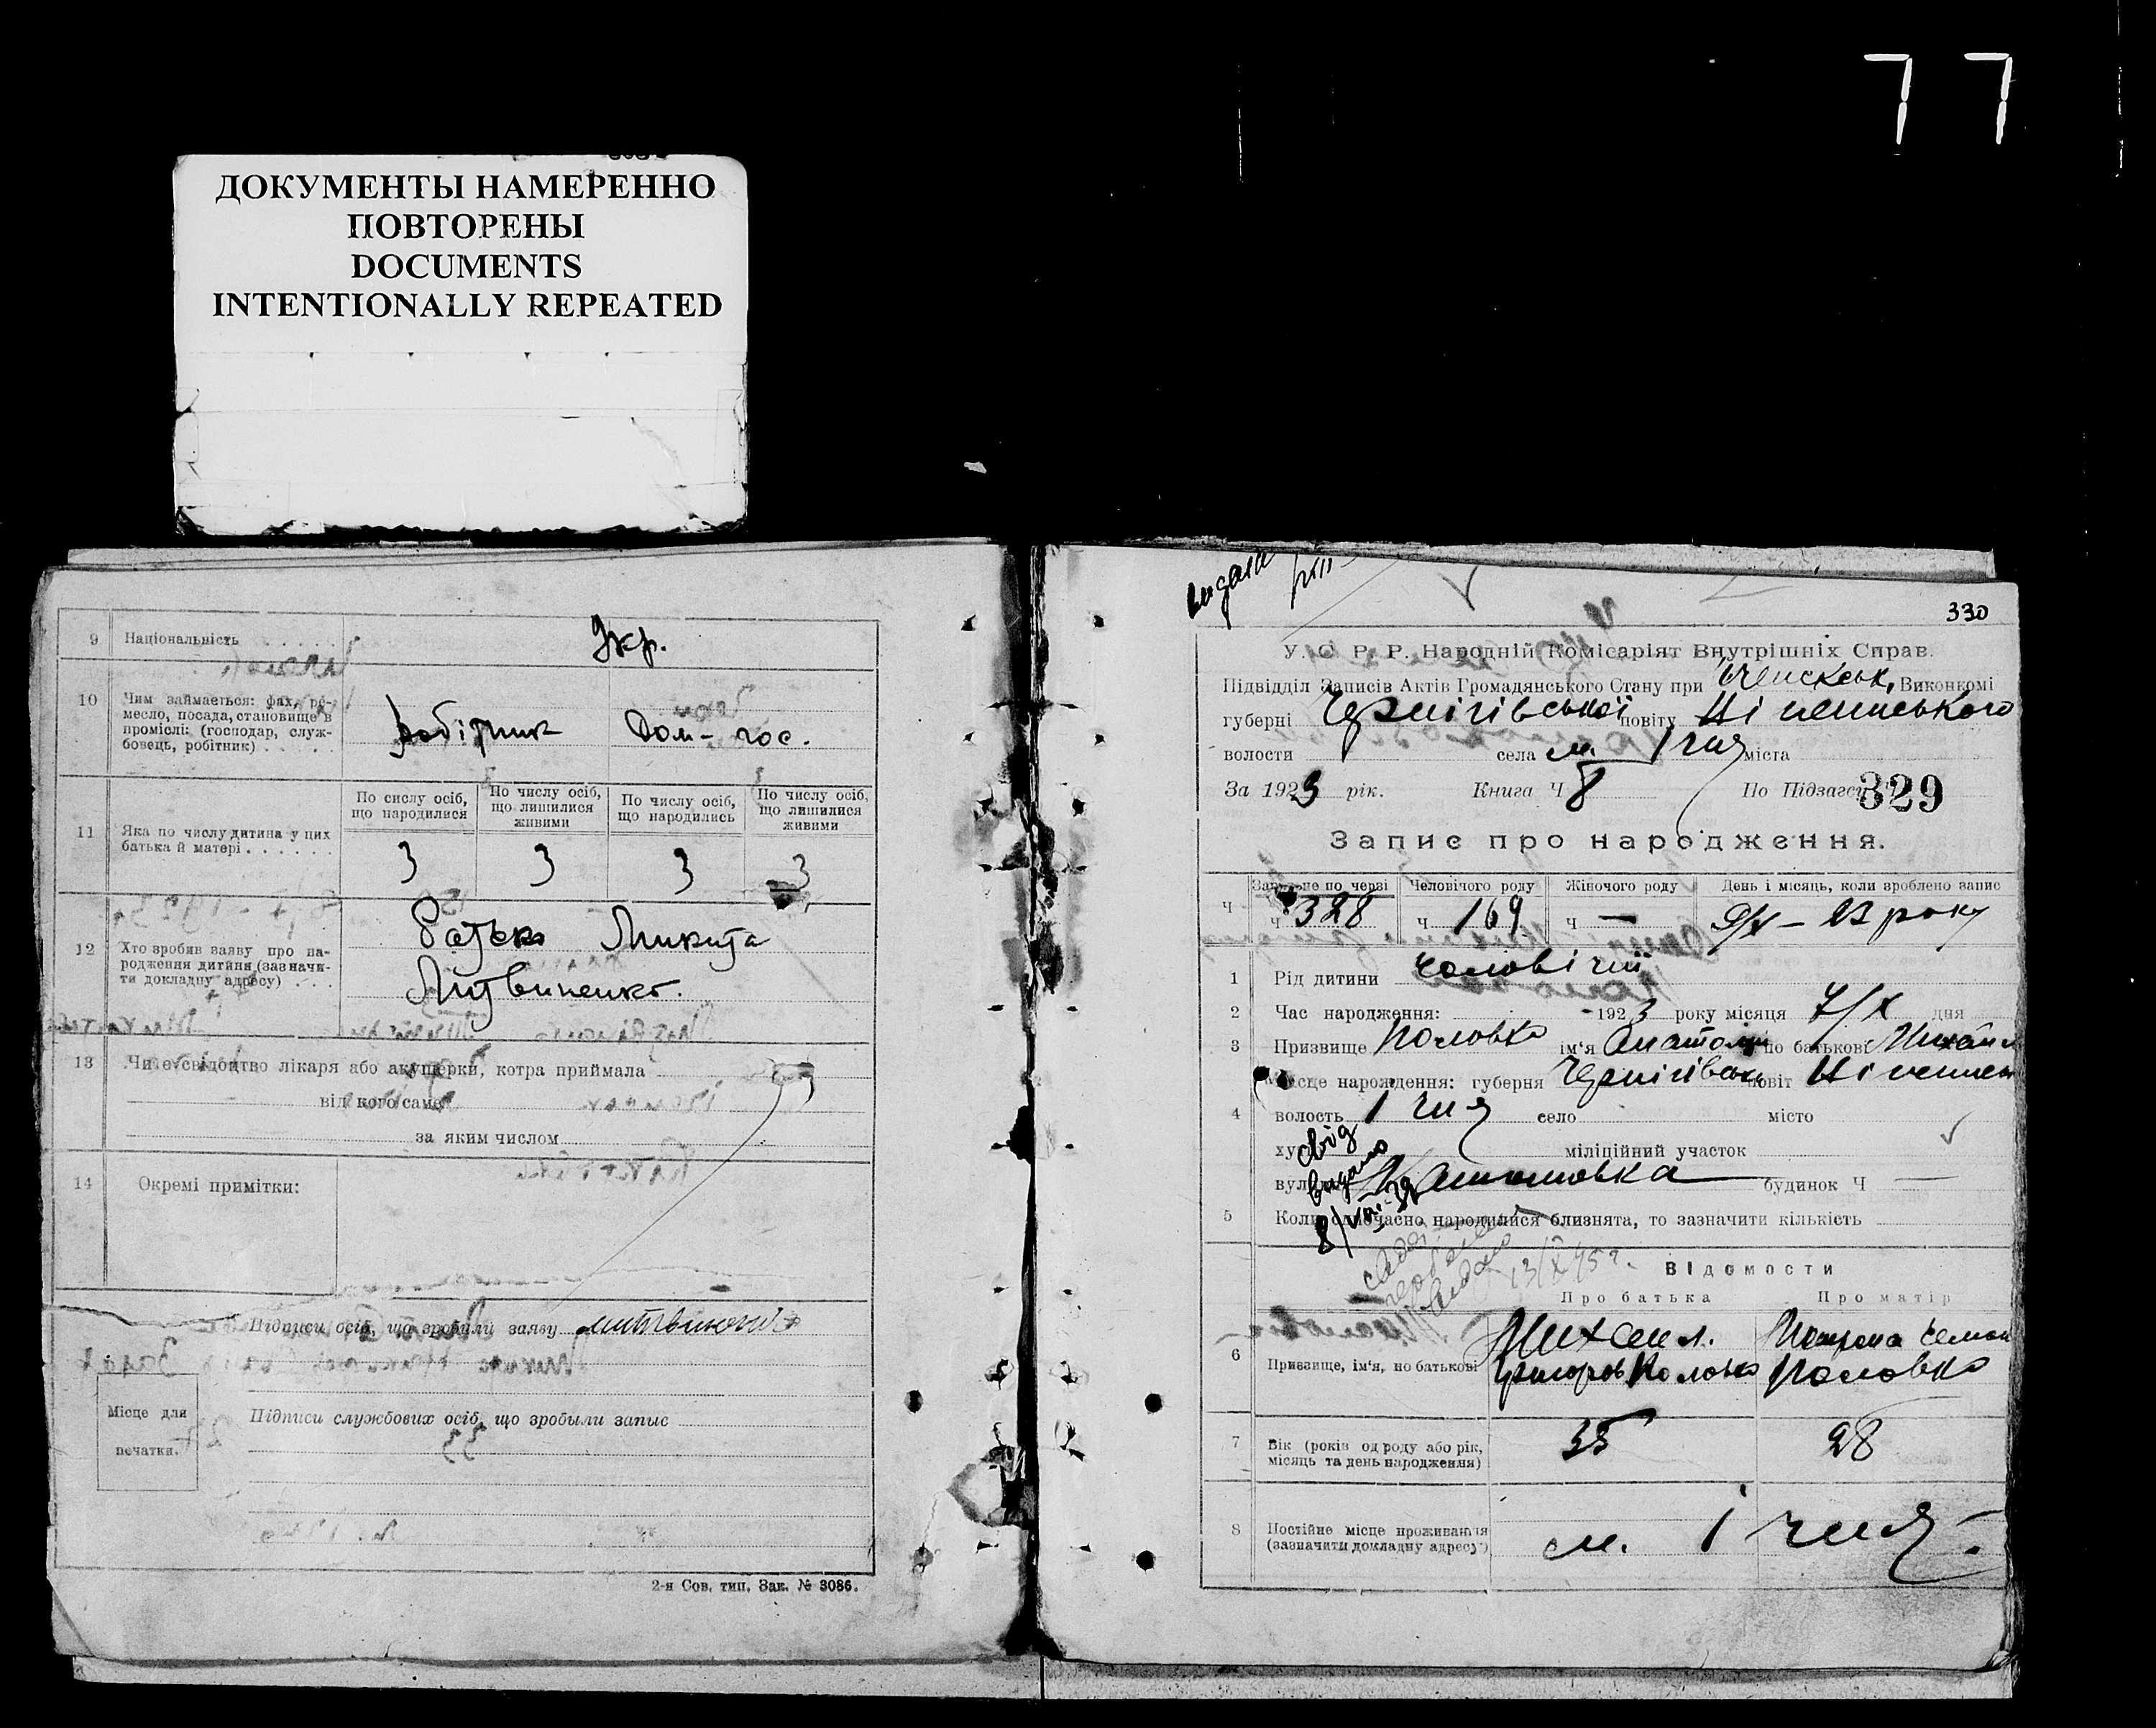 77
ДОКУМЕНТЫ НАМЕРЕННО
ПОВТОРЕНЫ
DOCUMENTS
INTENTIONALLY REPEATED
9 Національність Укр.
10 Чим займається: фах, ре-
месло, посада, становище в
промислі: (господар, служ-
бовець, робітник)
робітник Дом-гос.
11 Яка по числу дитина у цих
батька й матері
По сислу осіб,
що народилися
По числу осіб,
що лишилися
живими
По числу осіб,
що народились
По числу осіб,
що лишилися
живими
3 3 3 3
12 Хто зробив заяву про на-
родження дитини (зазначи-
ти докладну адресу)
Батько Микита
Литвиненко.
13 Чи є свідоцтво лікаря або акушерки, котра приймала
від кого саме
за яким числом
14 Окремі примітки:
Підписи осіб, що зробили заяву
Місце для
печатки.
Підписи службових осіб, що зробыли запыс
2-я Сов. тип. Зак. № 3086.
видана
330
У. С. Р. Р. Народній Комісаріят Внутрішніх Справ.
Підвідділ Записів Актів Громадянського Стану при Виконкомі
губерні Чернігівської повіту Ніженського
волости села м. Ічня міста
За 1923 рік. Книга Ч 8 По Підзагсу 329
Запис про народження.
Ч Загальне по черзі Человічого роду Жіночого роду День і місяць, коли зроблено запис
ч 328 ч 169 ч — 9/X – 23 року
1 Рід дитини чоловічий
2 Час народження: 1923 року місяця 7/X дня
3 Призвище Половко ім'я Анатолій по батькові Михайл
Місце нарождення: губерня Чернігівськ повіт Ніженськ
4 волость Ічня село місто
ху міліційний участок
вул будинок Ч —
свід
видано
8/VIII-39
5 Коли одночасно народилися близнята, то зазначити кількість
видано 13/X 45 г.
Відомости
Про батька Про матір
6 Призвище, ім'я, по батькові
Михаил. Григоров Половко
Семен Половко
7 Вік (років од роду або рік,
місяць та день народження)
35 28
8 Постійне місце проживання
(зазначити докладну адресу)
м. Ічня.